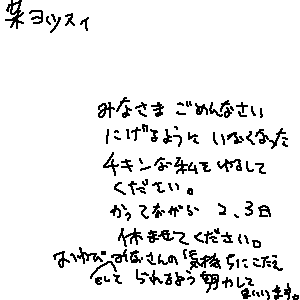 みなさま ごめんなさい
にげるように いなくなった
チキンな私をゆるして
ください。
かってながら 2、3日
休ませてください。
おわび みなさんの「気持ちにこたえ
そして られるよう 努力して
まいります。